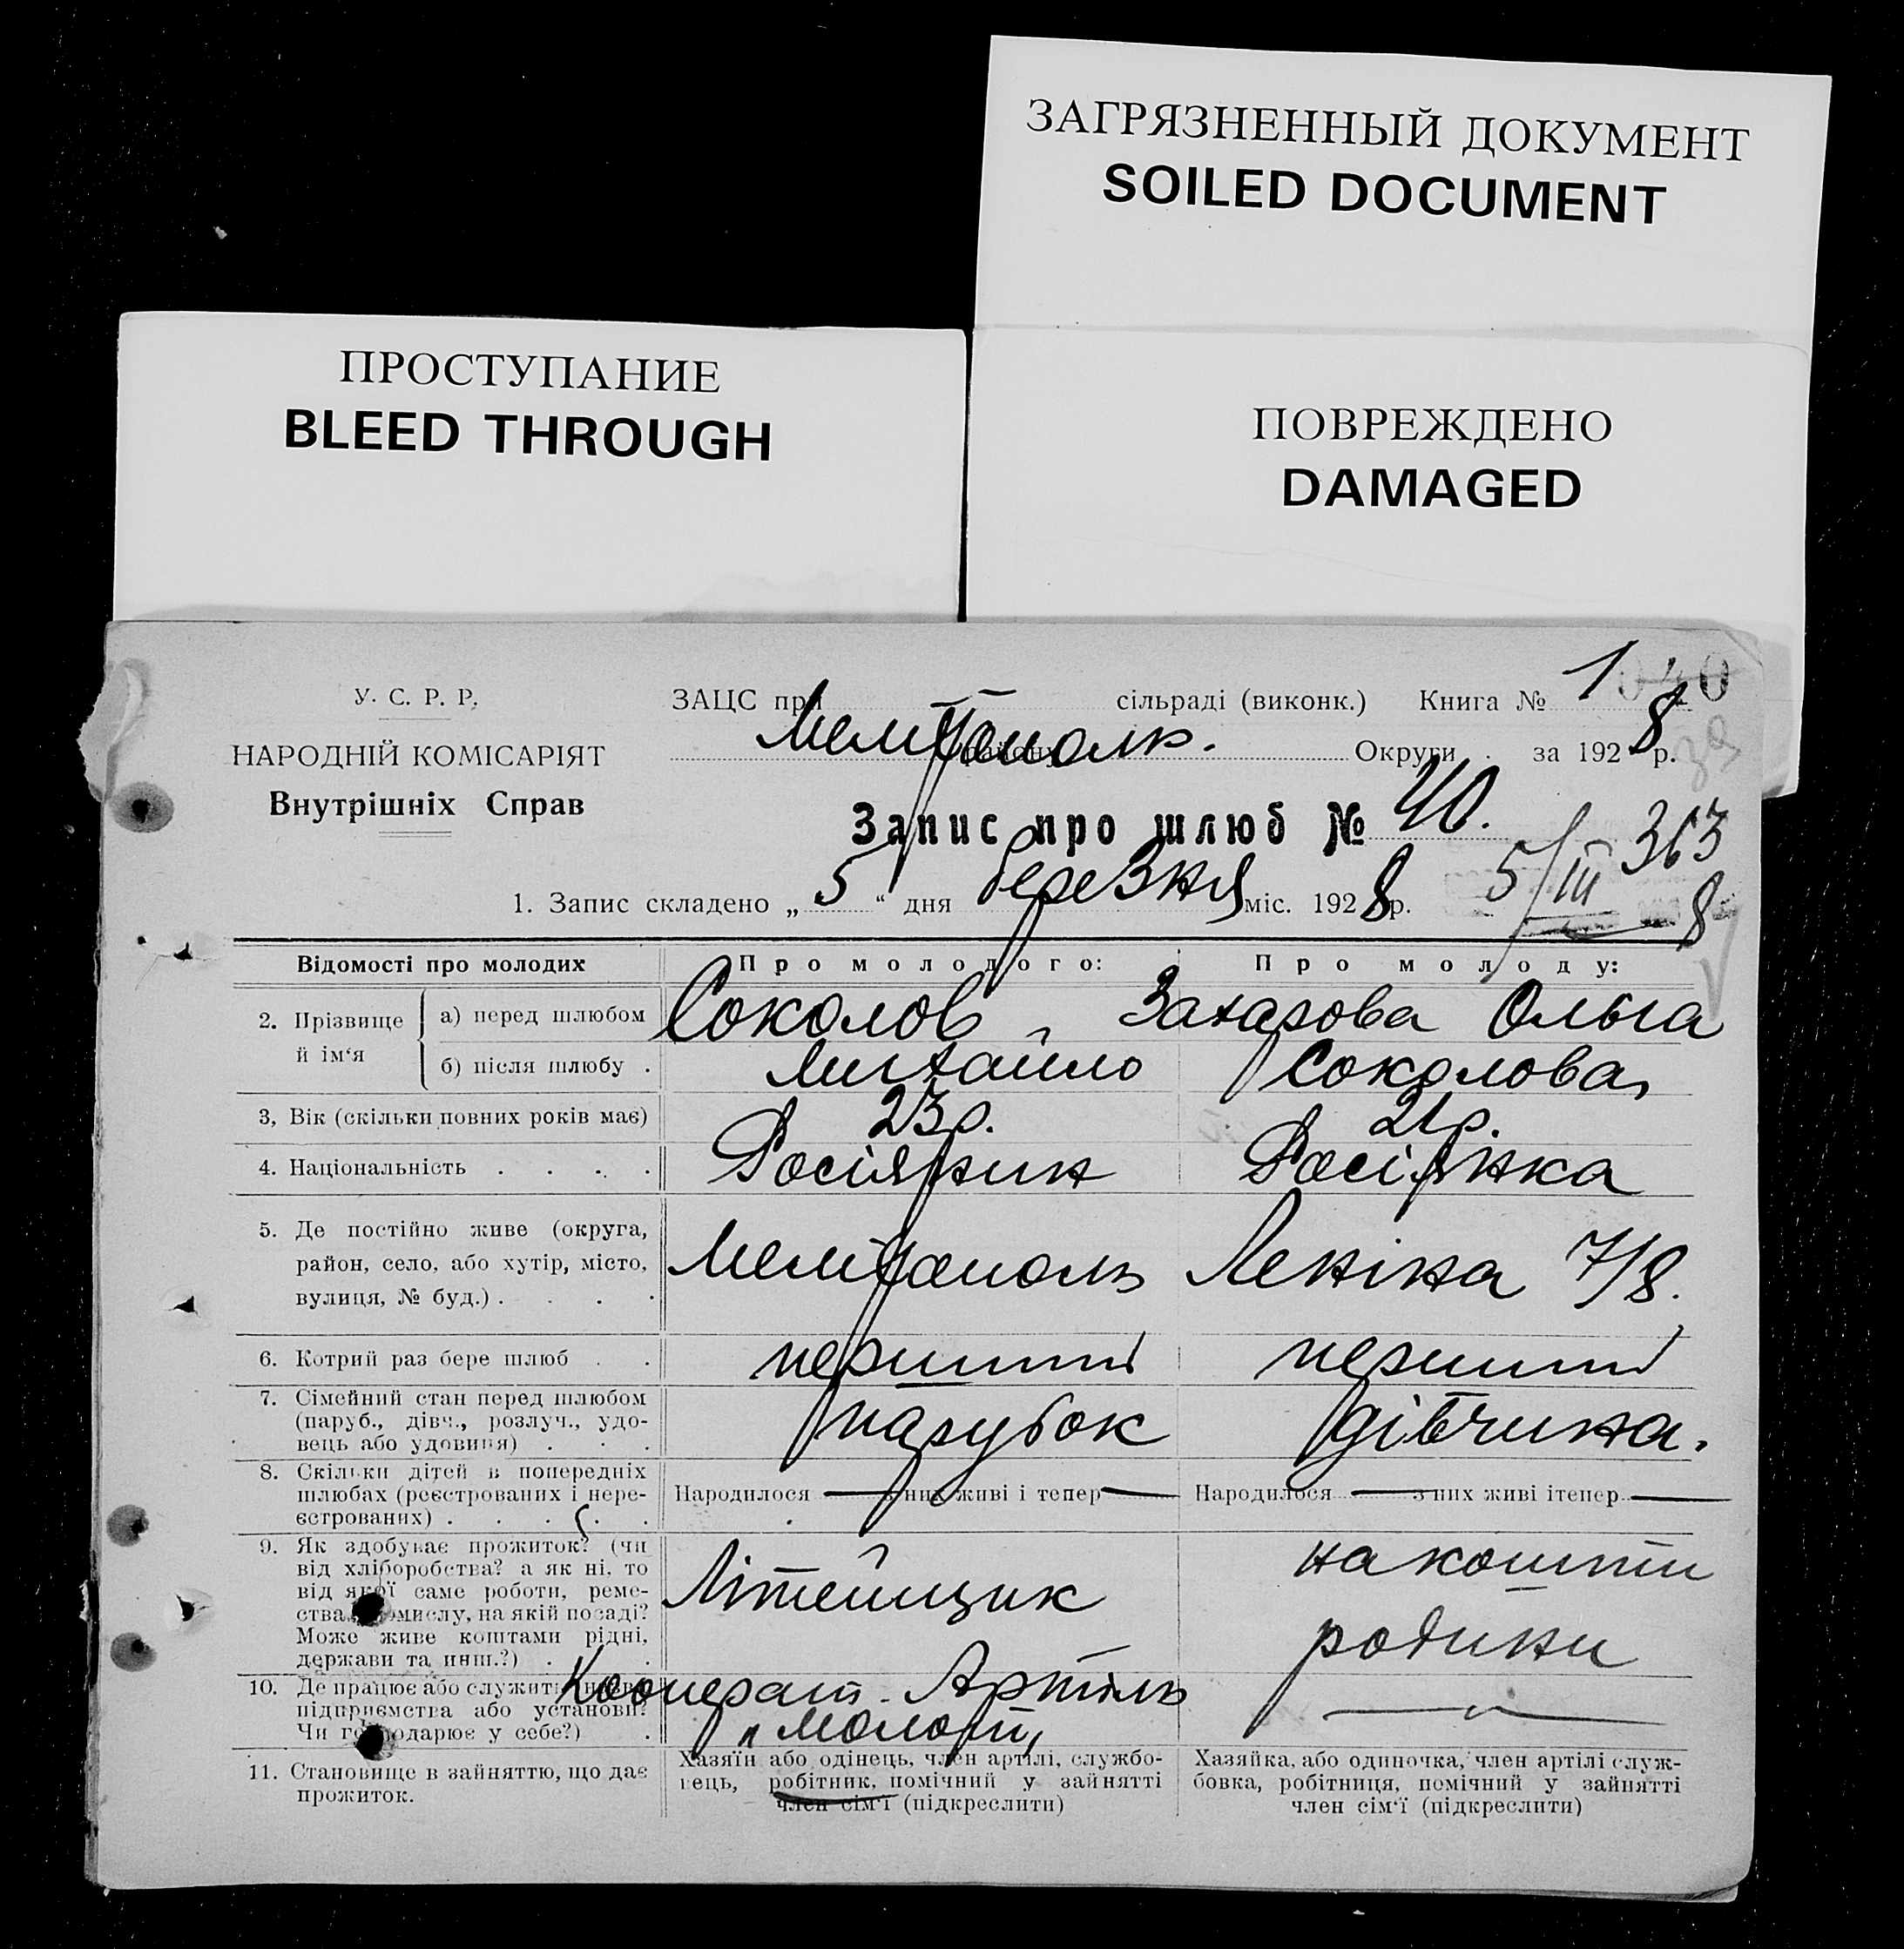 ЗАГРЯЗНЕННЫЙ ДОКУМЕНТ
SOILED DOCUMENT
ПРОСТУПАНИЕ
BLEED THROUGH
ПОВРЕЖДЕНО
DAMAGED
У. С. Р. Р.
НАРОДНІЙ КОМІСАРІЯТ
Внутрішніх Справ
ЗАЦС при сільраді (виконк.) Книга № 1
Мелітополь. району Округи за 1928 р.
Запис про шлюб № 40.
363
1. Запис складено „5“ дня березня міс. 1928 р. 5/III 8
Відомості про молодих
Про молодого:
Про молоду:
2. Прізвище й ім‘я
а) перед шлюбом
б) після шлюбу .
Соколов
Михайло
Захарова Ольга
Соколова,
3, Вік (скільки повних років має)
23 р.
21 р.
4. Національність . . . .
Росіянин
Росіянка
5. Де постійно живе (округа,
район, село, або хутір, місто,
вулиця, № буд.) . . . .
Мелітополь Леніна 7/8.
6. Котрий раз бере шлюб . .
перший
перший
7. Сімейний стан перед шлюбом
(паруб., дівч., розлуч., удо-
вець або удовиця) . . .
парубок
дівчина.
8. Скільки дітей в попередніх
шлюбах (реєстрованих і нере-
єстрованих) . . . . .
Народилося — з них живі і тепер —
Народилося — з них живі ітепер —
9. Як здобуває прожиток? (чи
від хліборобства? а як ні, то
від якої саме роботи, реме-
ства, промислу, на якій посаді?
Може живе коштами рідні,
держави та инш.?) . .
Літейщик
на кошти
родини
10. Де працює або служить (назва
підприємства або установи?
Чи господарює у себе?) .
Кооперат. Артіль
„Молот„
11. Становище в зайняттю, що дає
прожиток.
Хазяїн або одінець, член артілі, службо-
вець, робітник, помічний у зайнятті
член сім‘ї (підкреслити)
Хазяйка, або одиночка, член артілі служ-
бовка, робітниця, помічний у зайнятті
член сім‘ї (підкреслити)